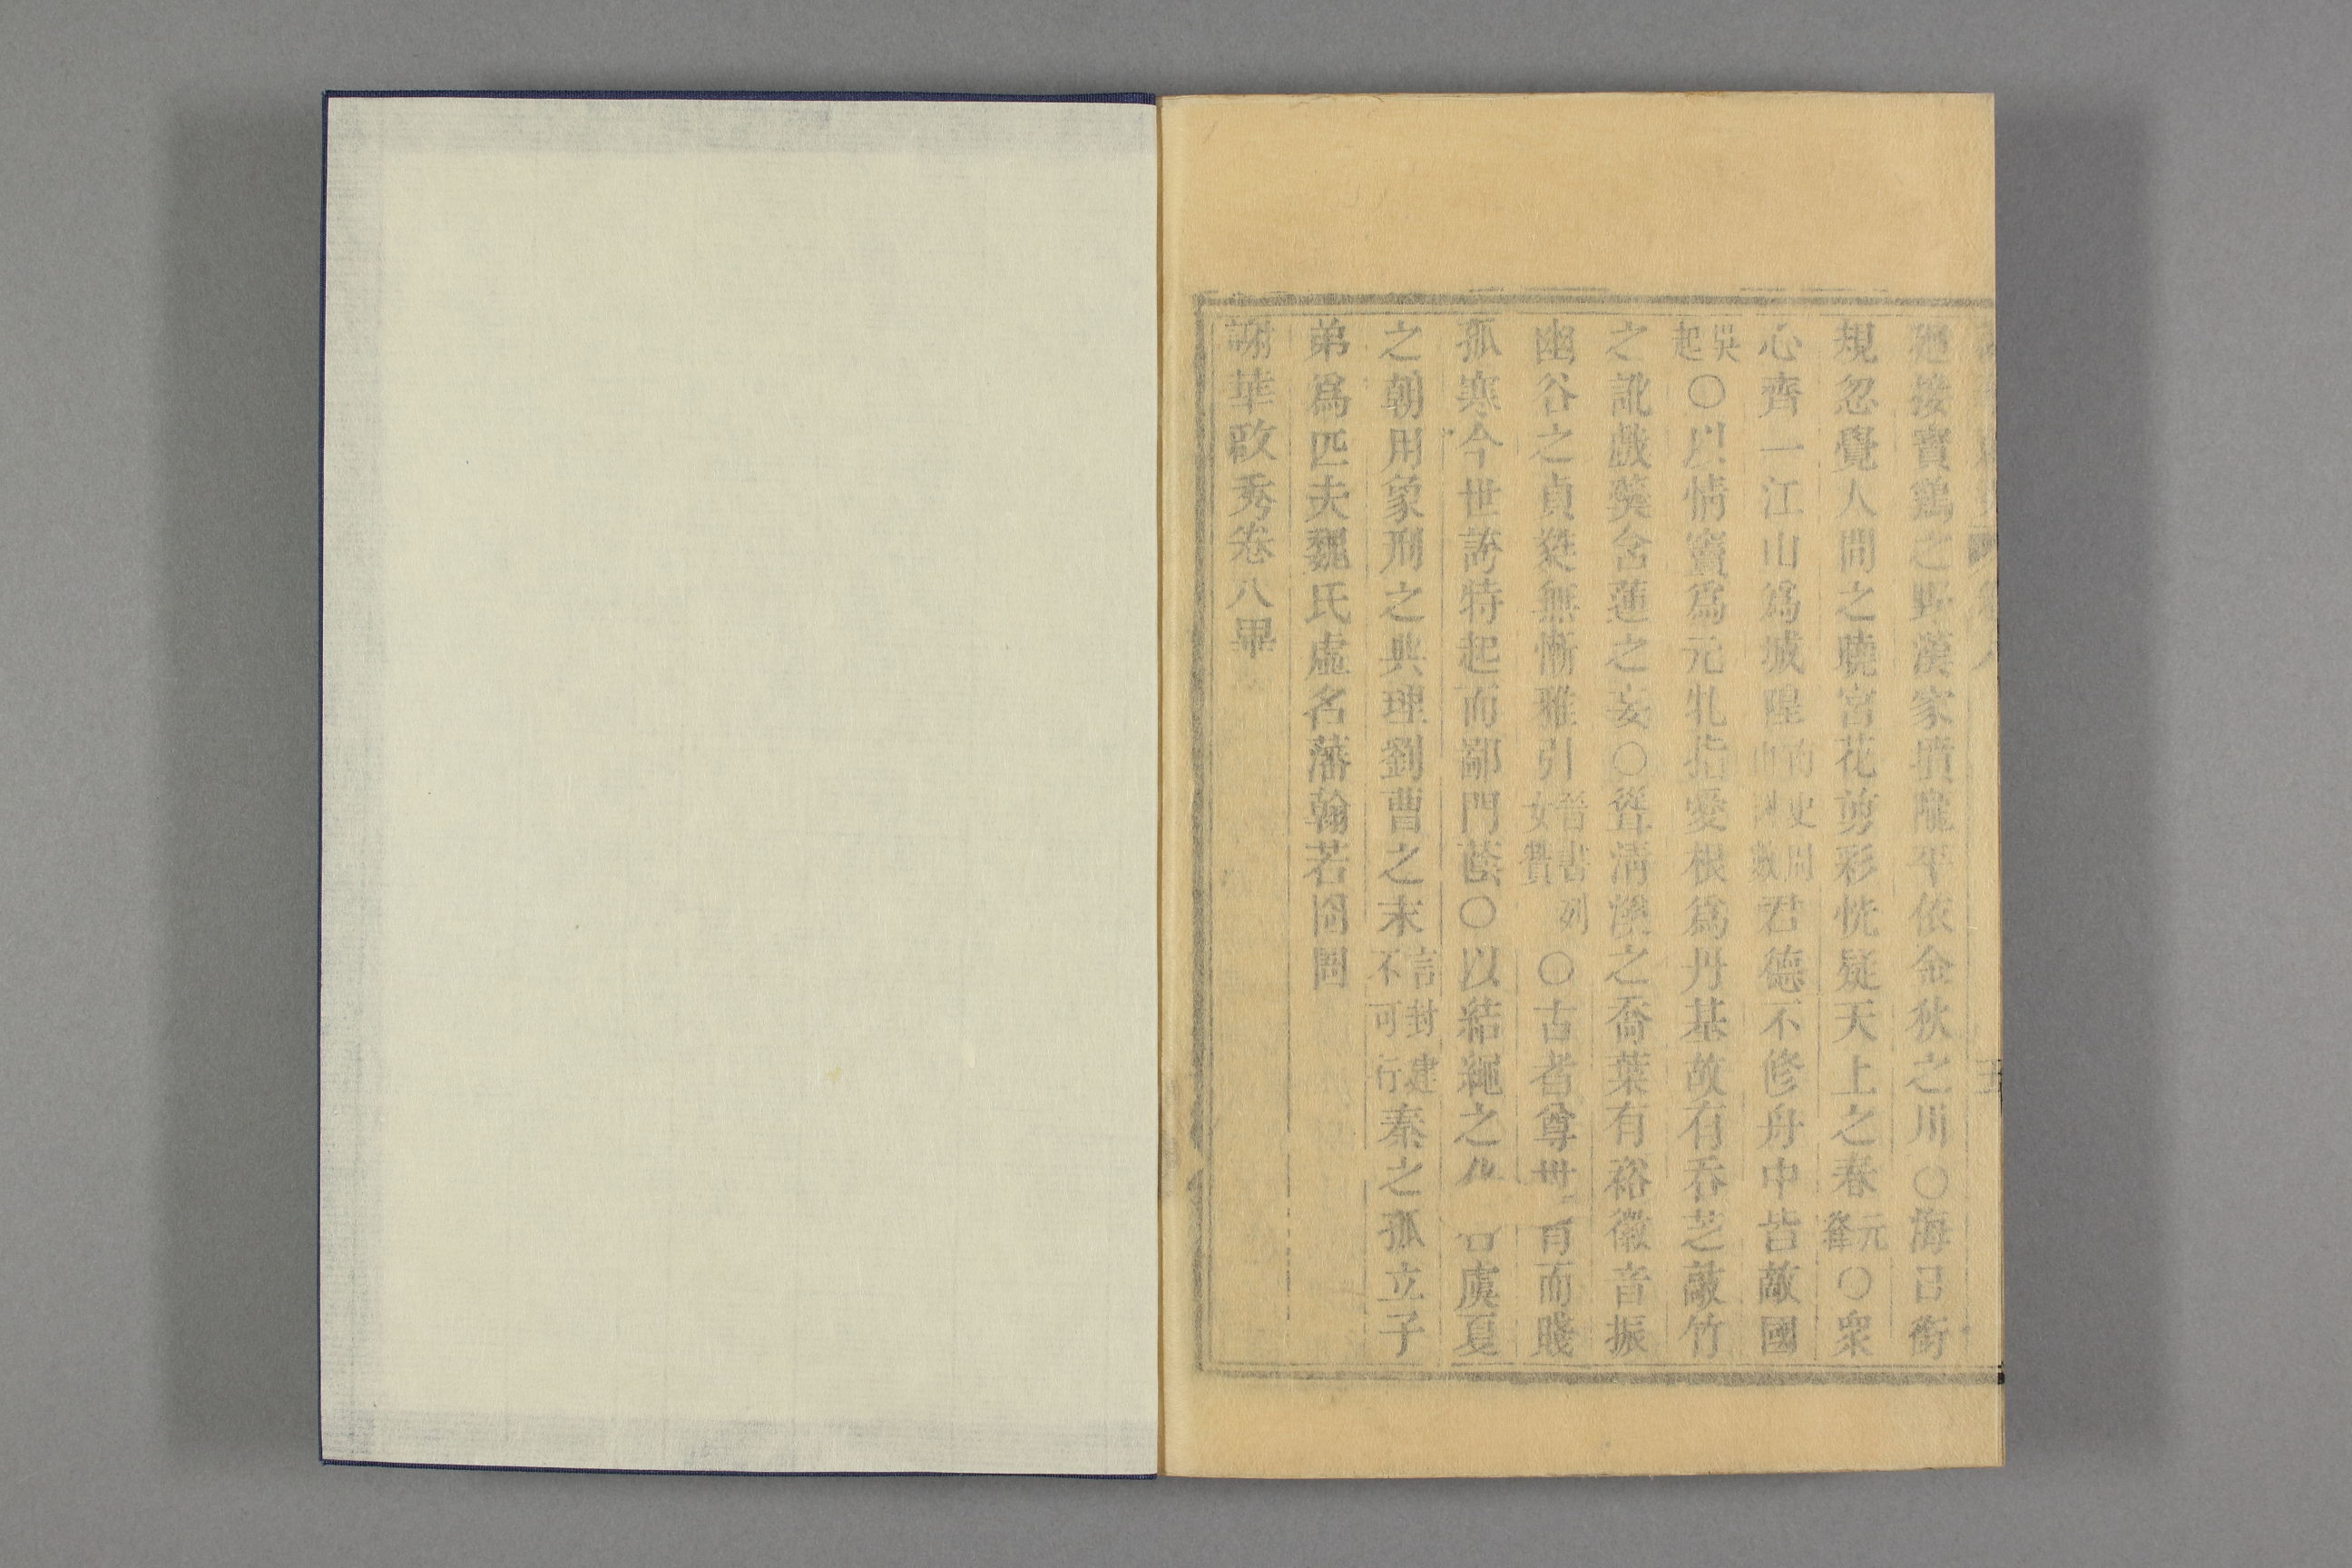 五
迴接寶鷄之野漢家墳隴平依金狄之川○海已銜
規忽覺人間之曉宮花剪彩恍疑天上之春元翠○衆
心齊一江山爲城隍南史周山圖敘君德不修舟中皆敵國
吳起○以情竇爲元牝指愛根爲丹基故有吞芝敲竹
之訛戲葵含蓮之妄○聳淸漢之喬葉有裕徽音振
幽谷之貞蕤無慚雅引晉書列女贊○古者尊世胄而賤
孤寒今世誇特起而鄙門蔭○以結繩之化虞夏
之朝用象刑之典理劉曹之末言封建不可行秦之孤立子
弟爲匹夫魏氏虛名藩翰若囹圄
謝華啟秀卷八畢